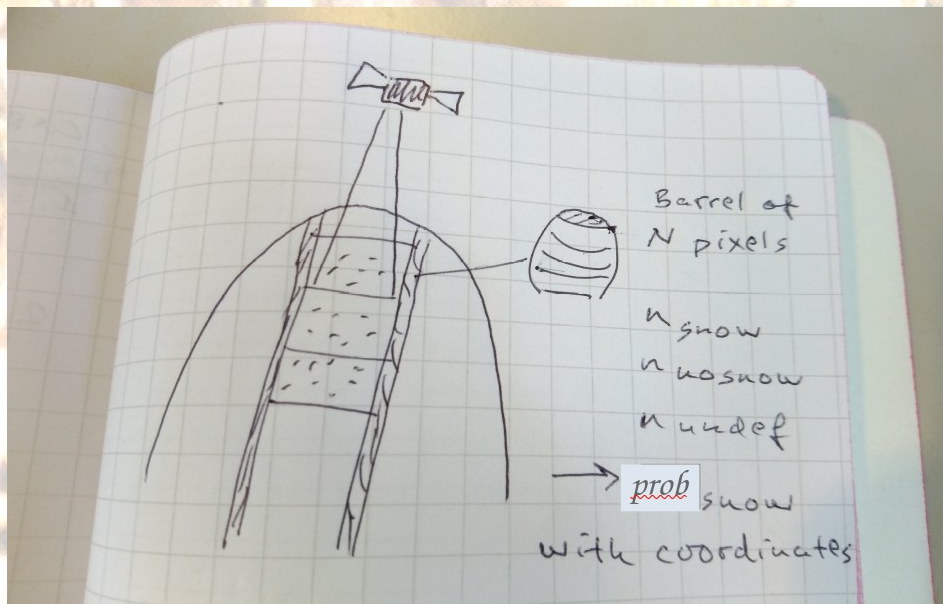 Barrel of
N pixels
n snow
n nosnow
n undef
→ prob snow
with coordinates